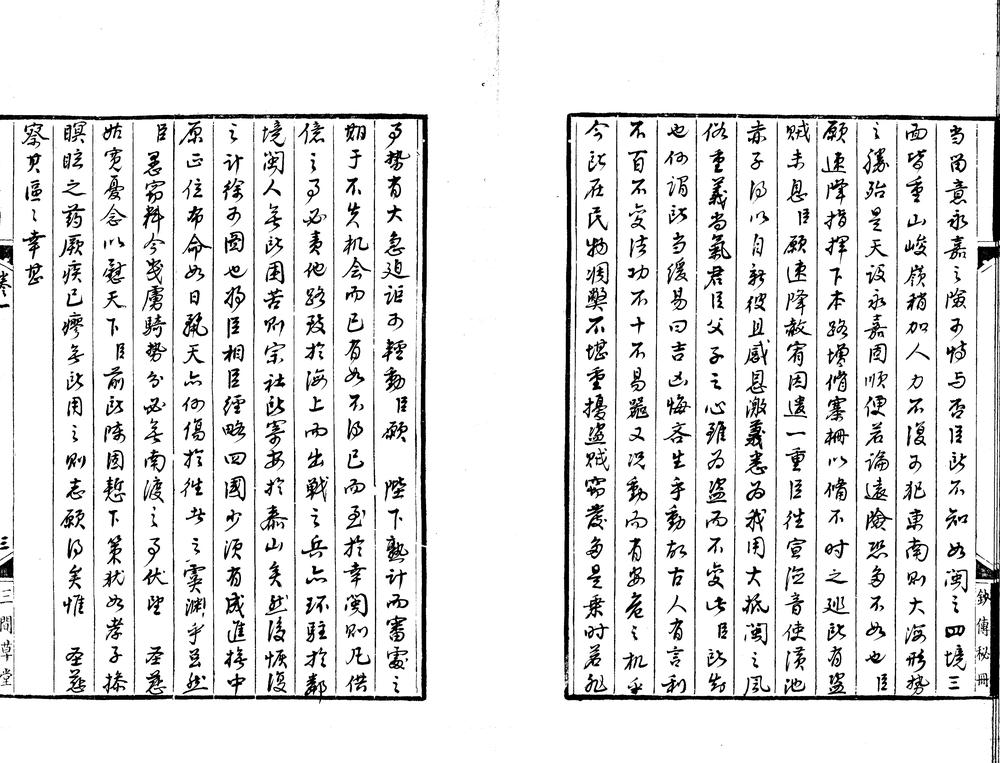 当留意永嘉之險可恃与否臣所不知如闽之四境三
面皆重山峻嶺稍加人力不復可犯東南則大海形勢
之勝殆是天設永嘉因順便若論遠險恐多不如也臣
願速降指揮下本路增脩寨柵以備不时之廵所有盜
贼未息臣願速降赦宥因遣一重臣往宣德音使潢池
赤子得以自新彼且感恩激義悉为我用大抵闽之風
俗重義尚氣君臣父子之心雖为盜而不变此臣所知
也何謂所当缓易曰吉凶悔吝生乎動故古人有言利
不百不变法功不十不易器又况動而有安危之机乎
今所在民物凋弊不堪重擾盜贼窃發多是乗时若非
事勢有大急迫讵可輕動臣願 陛下熟计而審處之
期于不失机会而已有如不得已而至於幸闽則凡供
億之事必責他路致於海上而出戰之兵亦环駐於鄰
境闽人無所困苦則宗社所寄安於泰山矣然後恢復
之计徐可圖也揚臣相臣經略四國少須有成進援中
原正位布命如日麗天亦何傷於往者之虞淵乎並然
臣愚窃料今歲虜騎勢分必無南渡之事伏望 圣慈
姑寬憂念以慰天下臣前所陳固懃下策犹如孝子操
瞑眩之药厥疾已瘳無所用之則志願得矣惟 圣慈
察其區〻幸甚
卷一
三
三間草堂
鈔傳秘冊